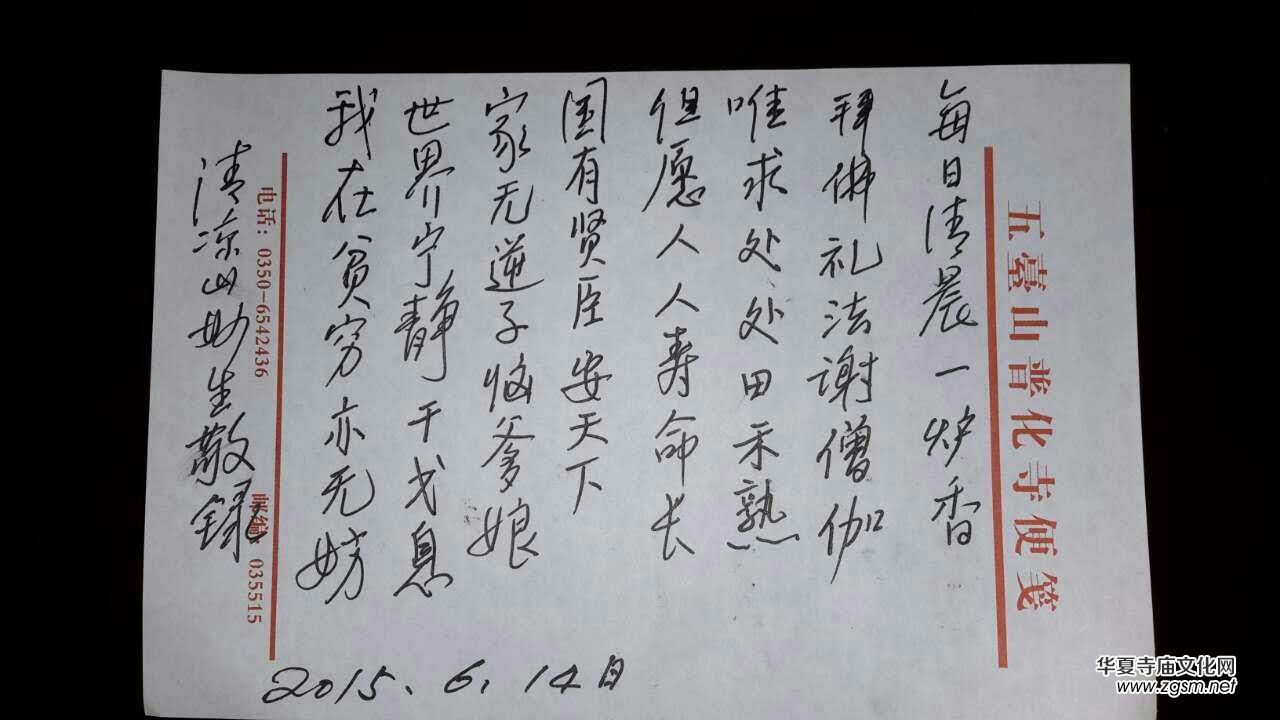 五臺山普化寺便笺
每日清晨一炉香
拜佛礼法谢僧伽
唯求处处田禾熟
但愿人人寿命长
国有贤臣安天下
家无逆子恼爹娘
世界宁静干戈息
我在贫穷亦无妨
清凉山妙生敬録
电话：0350-6542436
邮编 035515
2015.6.14日
华夏寺庙文化网
www.zgsm.net